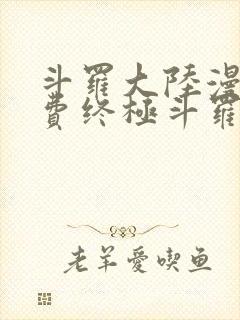 斗羅大陸漫
費终極斗羅
老羊愛喫鱼